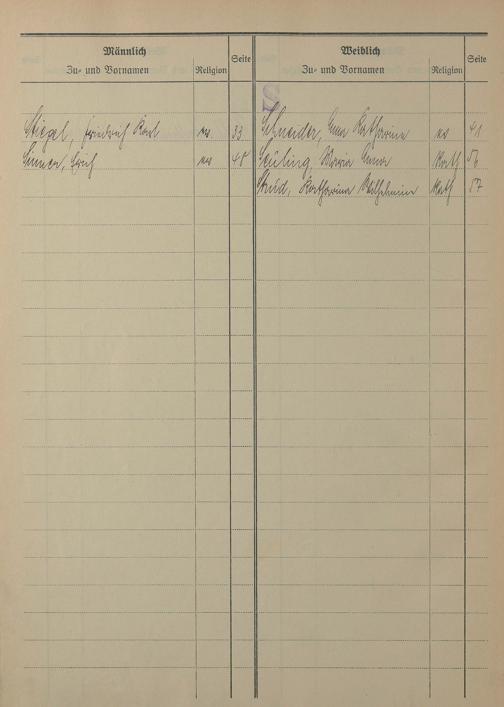 Männlich
Zu- und Vornamen
Religion
Seite
Weiblich
Zu- und Vornamen
Religion
Seite
S
Stiegel, Friedrich Karl ev. 33
Schneider, Anna Katharina ev 41
Simon, Erich ev 48
Seuling, Maria Anna Kath 56
Katharina Wilhelmine Kath 57